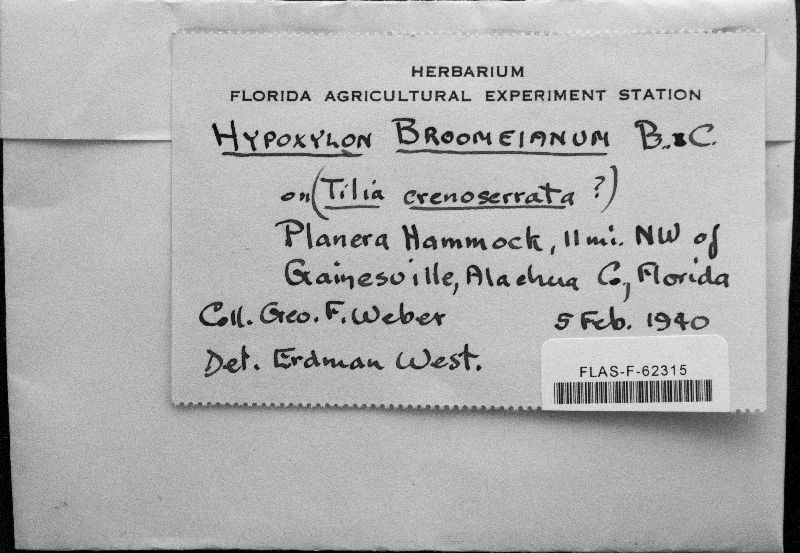 HERBARIUM
FLORIDA AGRICULTURAL EXPERIMENT STATION
HYPOXYLON BROOMEIANUM B. & C.
on (Tilia crenoserrata ?)
Planera Hammock, 11 mi. NW of
Gainesville, Alachua Co, Florida
Coll. Geo. F. Weber 5 Feb. 1940
Det. Erdman West.
FLAS-F-62315